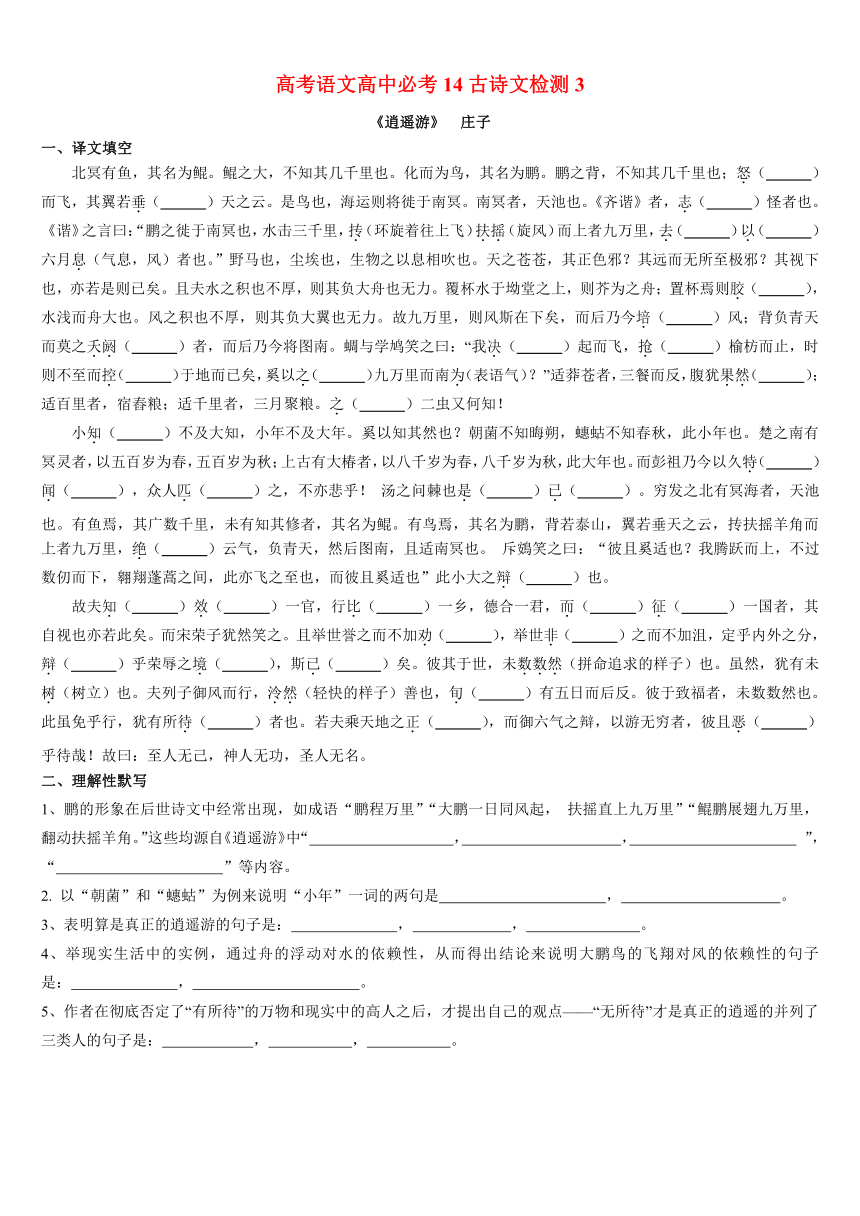 高考语文高中必考14古诗文检测3
《逍遥游》 庄子
一、译文填空
北冥有鱼，其名为鲲。鲲之大，不知其几千里也。化而为鸟，其名为鹏。鹏之背，不知其几千里也；怒（______）
而飞，其翼若垂（______）天之云。是鸟也，海运则将徙于南冥。南冥者，天池也。《齐谐》者，志（______）怪者也。
《谐》之言曰：“鹏之徙于南冥也，水击三千里，抟（环旋着往上飞）扶摇（旋风）而上者九万里，去（______）以（______）
六月息（气息，风）者也。”野马也，尘埃也，生物之以息相吹也。天之苍苍，其正色邪？其远而无所至极邪？其视下
也，亦若是则已矣。且夫水之积也不厚，则其负大舟也无力。覆杯水于坳堂之上，则芥为之舟；置杯焉则胶（______），
水浅而舟大也。风之积也不厚，则其负大翼也无力。故九万里，则风斯在下矣，而后乃今培（______）风；背负青天
而莫之夭阏（______）者，而后乃今将图南。蜩与学鸠笑之曰：“我决（______）起而飞，抢（______）榆枋而止，时
则不至而控（______）于地而已矣，奚以之（______）九万里而南为（表语气）？”适莽苍者，三餐而反，腹犹果然（______）；
适百里者，宿舂粮；适千里者，三月聚粮。之（______）二虫又何知！
小知（______）不及大知，小年不及大年。奚以知其然也？朝菌不知晦朔，蟪蛄不知春秋，此小年也。楚之南有
冥灵者，以五百岁为春，五百岁为秋；上古有大椿者，以八千岁为春，八千岁为秋，此大年也。而彭祖乃今以久特（______）
闻（______），众人匹（______）之，不亦悲乎！ 汤之问棘也是（______）已（______）。穷发之北有冥海者，天池
也。有鱼焉，其广数千里，未有知其修者，其名为鲲。有鸟焉，其名为鹏，背若泰山，翼若垂天之云，抟扶摇羊角而
上者九万里，绝（______）云气，负青天，然后图南，且适南冥也。 斥鴳笑之曰：“彼且奚适也？我腾跃而上，不过
数仞而下，翱翔蓬蒿之间，此亦飞之至也，而彼且奚适也”此小大之辩（______）也。
故夫知（______）效（______）一官，行比（______）一乡，德合一君，而（______）征（______）一国者，其
自视也亦若此矣。而宋荣子犹然笑之。且举世誉之而不加劝（______），举世非（______）之而不加沮，定乎内外之分，
辩（______）乎荣辱之境（______），斯已（______）矣。彼其于世，未数数然（拼命追求的样子）也。虽然，犹有未
树（树立）也。夫列子御风而行，泠然（轻快的样子）善也，旬（______）有五日而后反。彼于致福者，未数数然也。
此虽免乎行，犹有所待（______）者也。若夫乘天地之正（______），而御六气之辩，以游无穷者，彼且恶（______）
乎待哉！故曰：至人无己，神人无功，圣人无名。
二、理解性默写
1、鹏的形象在后世诗文中经常出现，如成语“鹏程万里”“大鹏一日同风起， 扶摇直上九万里”“鲲鹏展翅九万里，
翻动扶摇羊角。”这些均源自《逍遥游》中“____________，____________，____________ ”，
“____________”等内容。
2. 以“朝菌”和“蟪蛄”为例来说明“小年”一词的两句是____________，____________。
3、表明算是真正的逍遥游的句子是：____________，____________，____________。
4、举现实生活中的实例，通过舟的浮动对水的依赖性，从而得出结论来说明大鹏鸟的飞翔对风的依赖性的句子
是：____________，____________。
5、作者在彻底否定了“有所待”的万物和现实中的高人之后，才提出自己的观点——“无所待”才是真正的逍遥的并列了
三类人的句子是：____________，____________，____________。